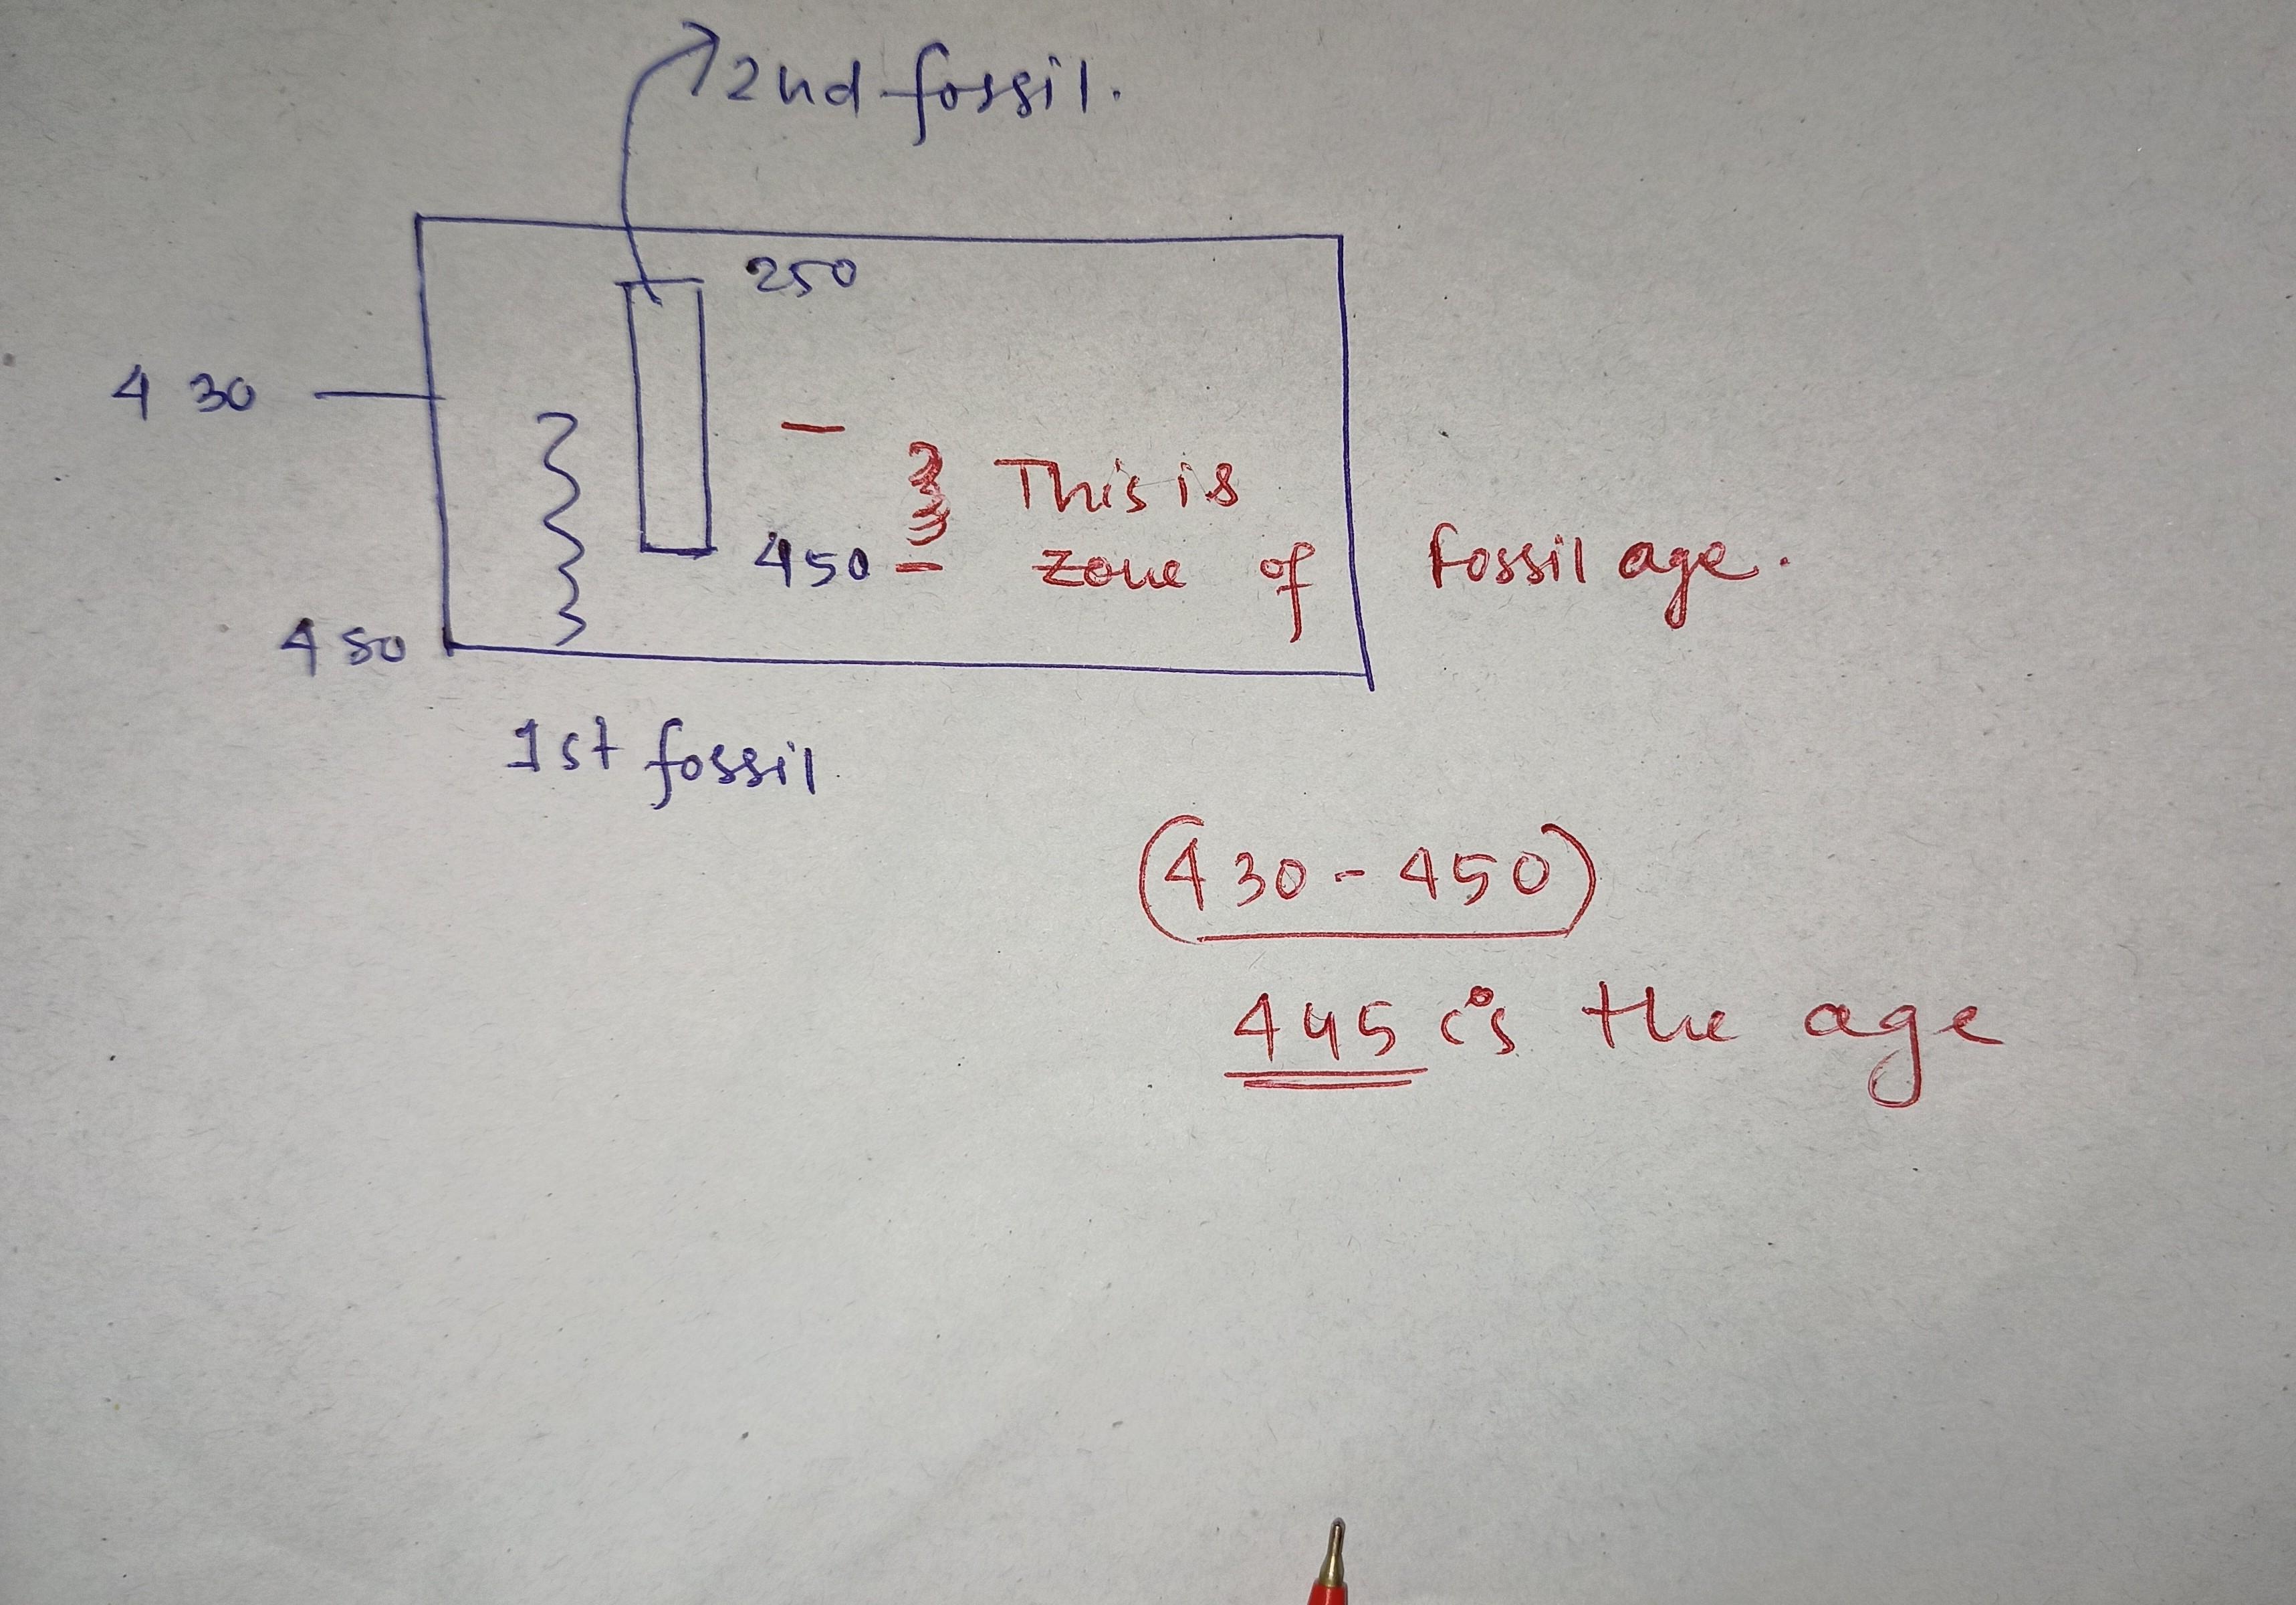 2nd fossil.
250
4 30
This is
450 - zone of fossil age.
480
1st fossil
(430 - 450)
445 is the age